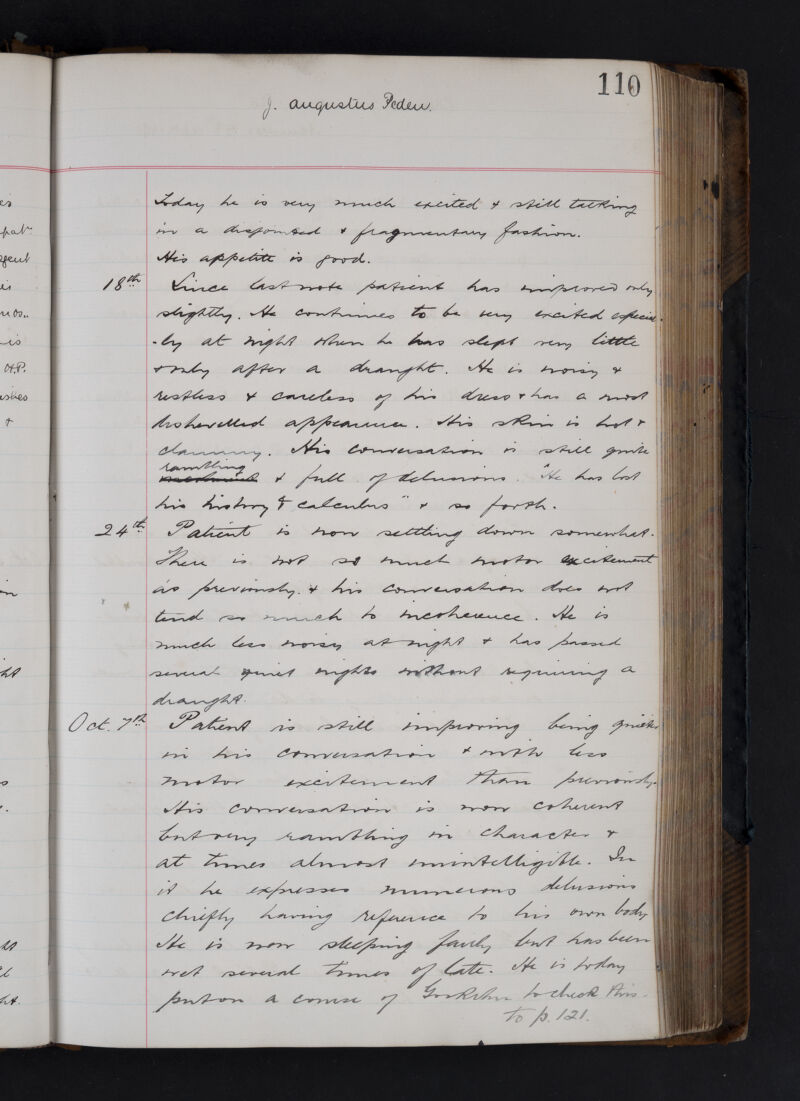 110
J. Augustus Peden.
Today he is very much excited & still talking
in a disjointed & fragmentary fashion.
His appetite is good.
18th Since last note patient has improved only
slightly. He continues to be very excited especial-
-ly at night when he has slept very little
& only after a draught. He is noisy &
restless & careless of his dress & has a most
dishevelled appearance. His skin is hot &
clammy. His conversation is still quite
rambling
& full of delusions. "He has lost
his history & calculus" & so forth.
24th Patient is now settling down somewhat.
There is not so much motor excitement
as previously & his conversation does not
tend so much to incoherence. He is
much less noisy at night & has passed
several quiet nights without requiring a
draught.
Oct. 7th Patient is still improving being quieter
in his conversation & with less
motor excitement than previously.
His conversation is now coherent
but very rambling in character &
at times almost unintelligible. In
it he expresses numerous delusions
chiefly having reference to his own body
He is now sleeping fairly but has been
wet several times of late. He is today
put on a course of to check this.
to p. 121.